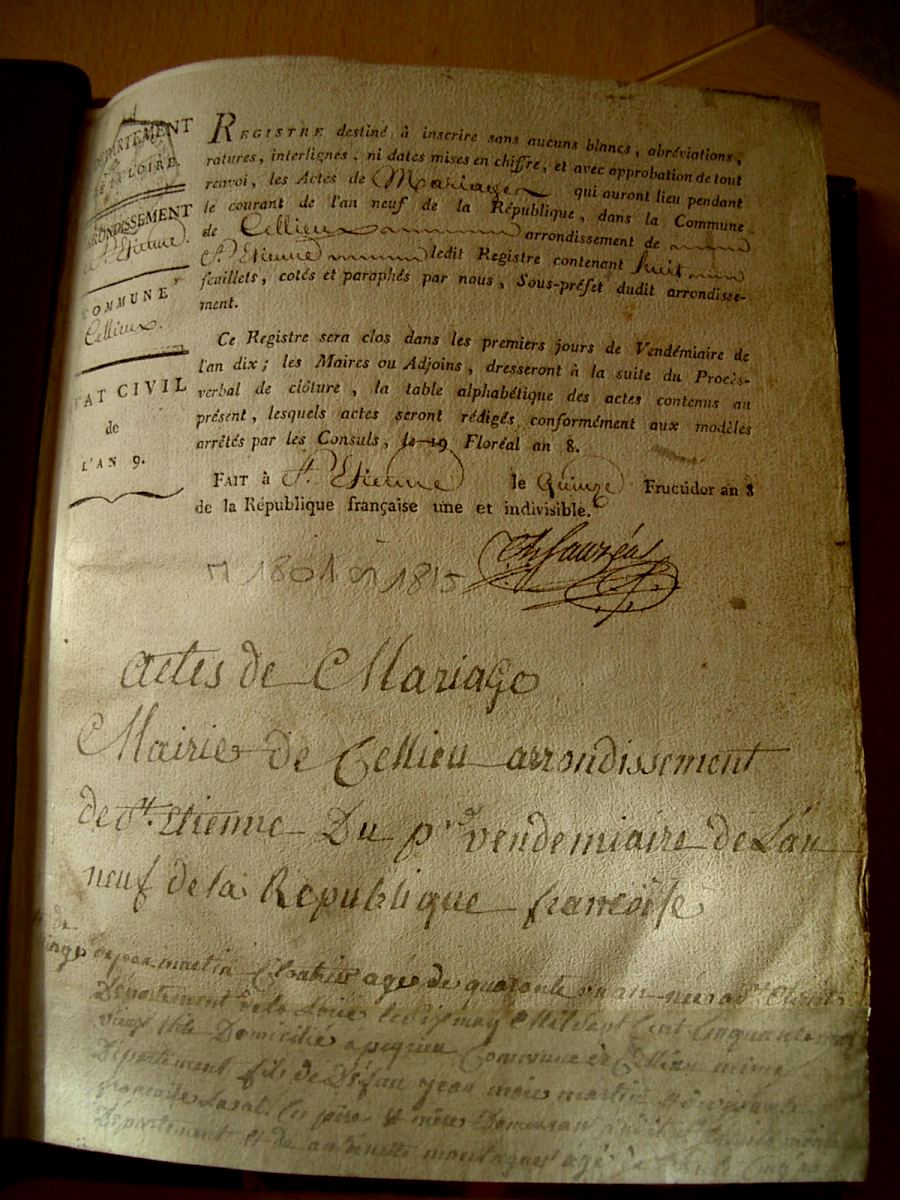 DÉPARTEMENT
LOIRE.
ARRONDISSEMENT
St. Etienne.
COMMUNE
Cellieux.
ÉTAT CIVIL
de
L'AN 9.
REGISTRE destiné à inscrire sans aucuns blancs, abréviations,
ratures, interlignes, ni dates mises en chiffre, et avec approbation de tout
renvoi, les Actes de Mariages qui auront lieu pendant
le courant de l'an neuf de la République, dans la Commune
de Cellieux arrondissement de
St. Etienne ledit Registre contenant huit
feuillets, cotés et paraphés par nous, Sous-préfet dudit arrondisse-
ment.
Ce Registre sera clos dans les premiers jours de Vendémiaire de
l'an dix; les Maires ou Adjoins, dresseront à la suite du Procès-
verbal de clôture, la table alphabétique des actes contenus au
présent, lesquels actes seront rédigés conformément aux modèles
arrêtés par les Consuls, le 19 Floréal an 8.
FAIT à St. Etienne le Quinze Fructidor an 8
de la République française une et indivisible.
M 1801 à 1815
actes de Mariage
Mairie de Cellieu arrondissement
de St. Etienne Du pr vendemiaire de L'an
neuf de la Republique francoise
martin agé de quarante un an née a
Département de la Loire le dix may Mil Sept Cent Cinquante
Domicilié a Commune de Cellieu même
Département fils de Défun jean martin
françoise père & mère
Département & de antoinette agé de